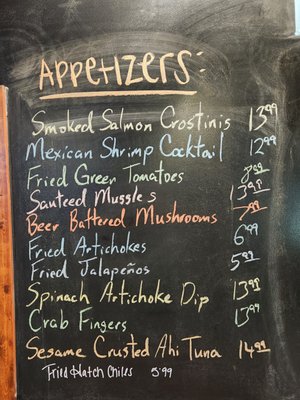 Appetizers:
Smoked Salmon Crostinis 13.99
Mexican Shrimp Cocktail 12.99
Fried Green Tomatoes
Sauteed Mussles 13.99
Beer Battered Mushrooms 7.99
Fried Artichokes 6.99
Fried Jalapeños 5.99
Spinach Artichoke Dip 13.99
Crab Fingers 13.99
Sesame Crusted Ahi Tuna 14.99
Fried Hatch Chiles 5.99